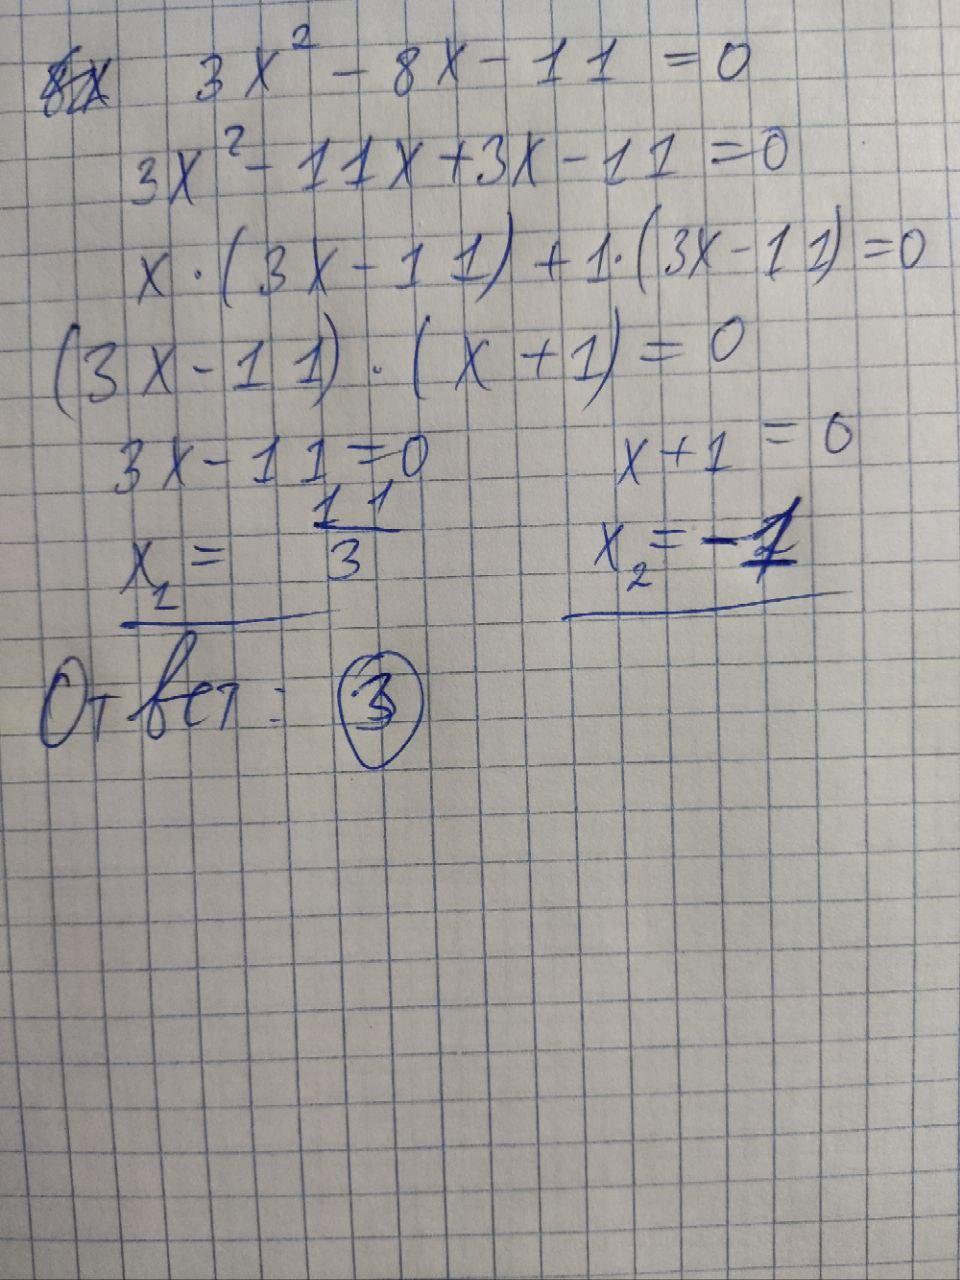 3x² - 8x - 11 = 0
3x² - 11x + 3x - 11 = 0
x · (3x - 11) + 1 · (3x - 11) = 0
(3x - 11) · (x + 1) = 0
3x - 11 = 0 x + 1 = 0
x₁ = 11/3 x₂ = -1
Ответ: 3